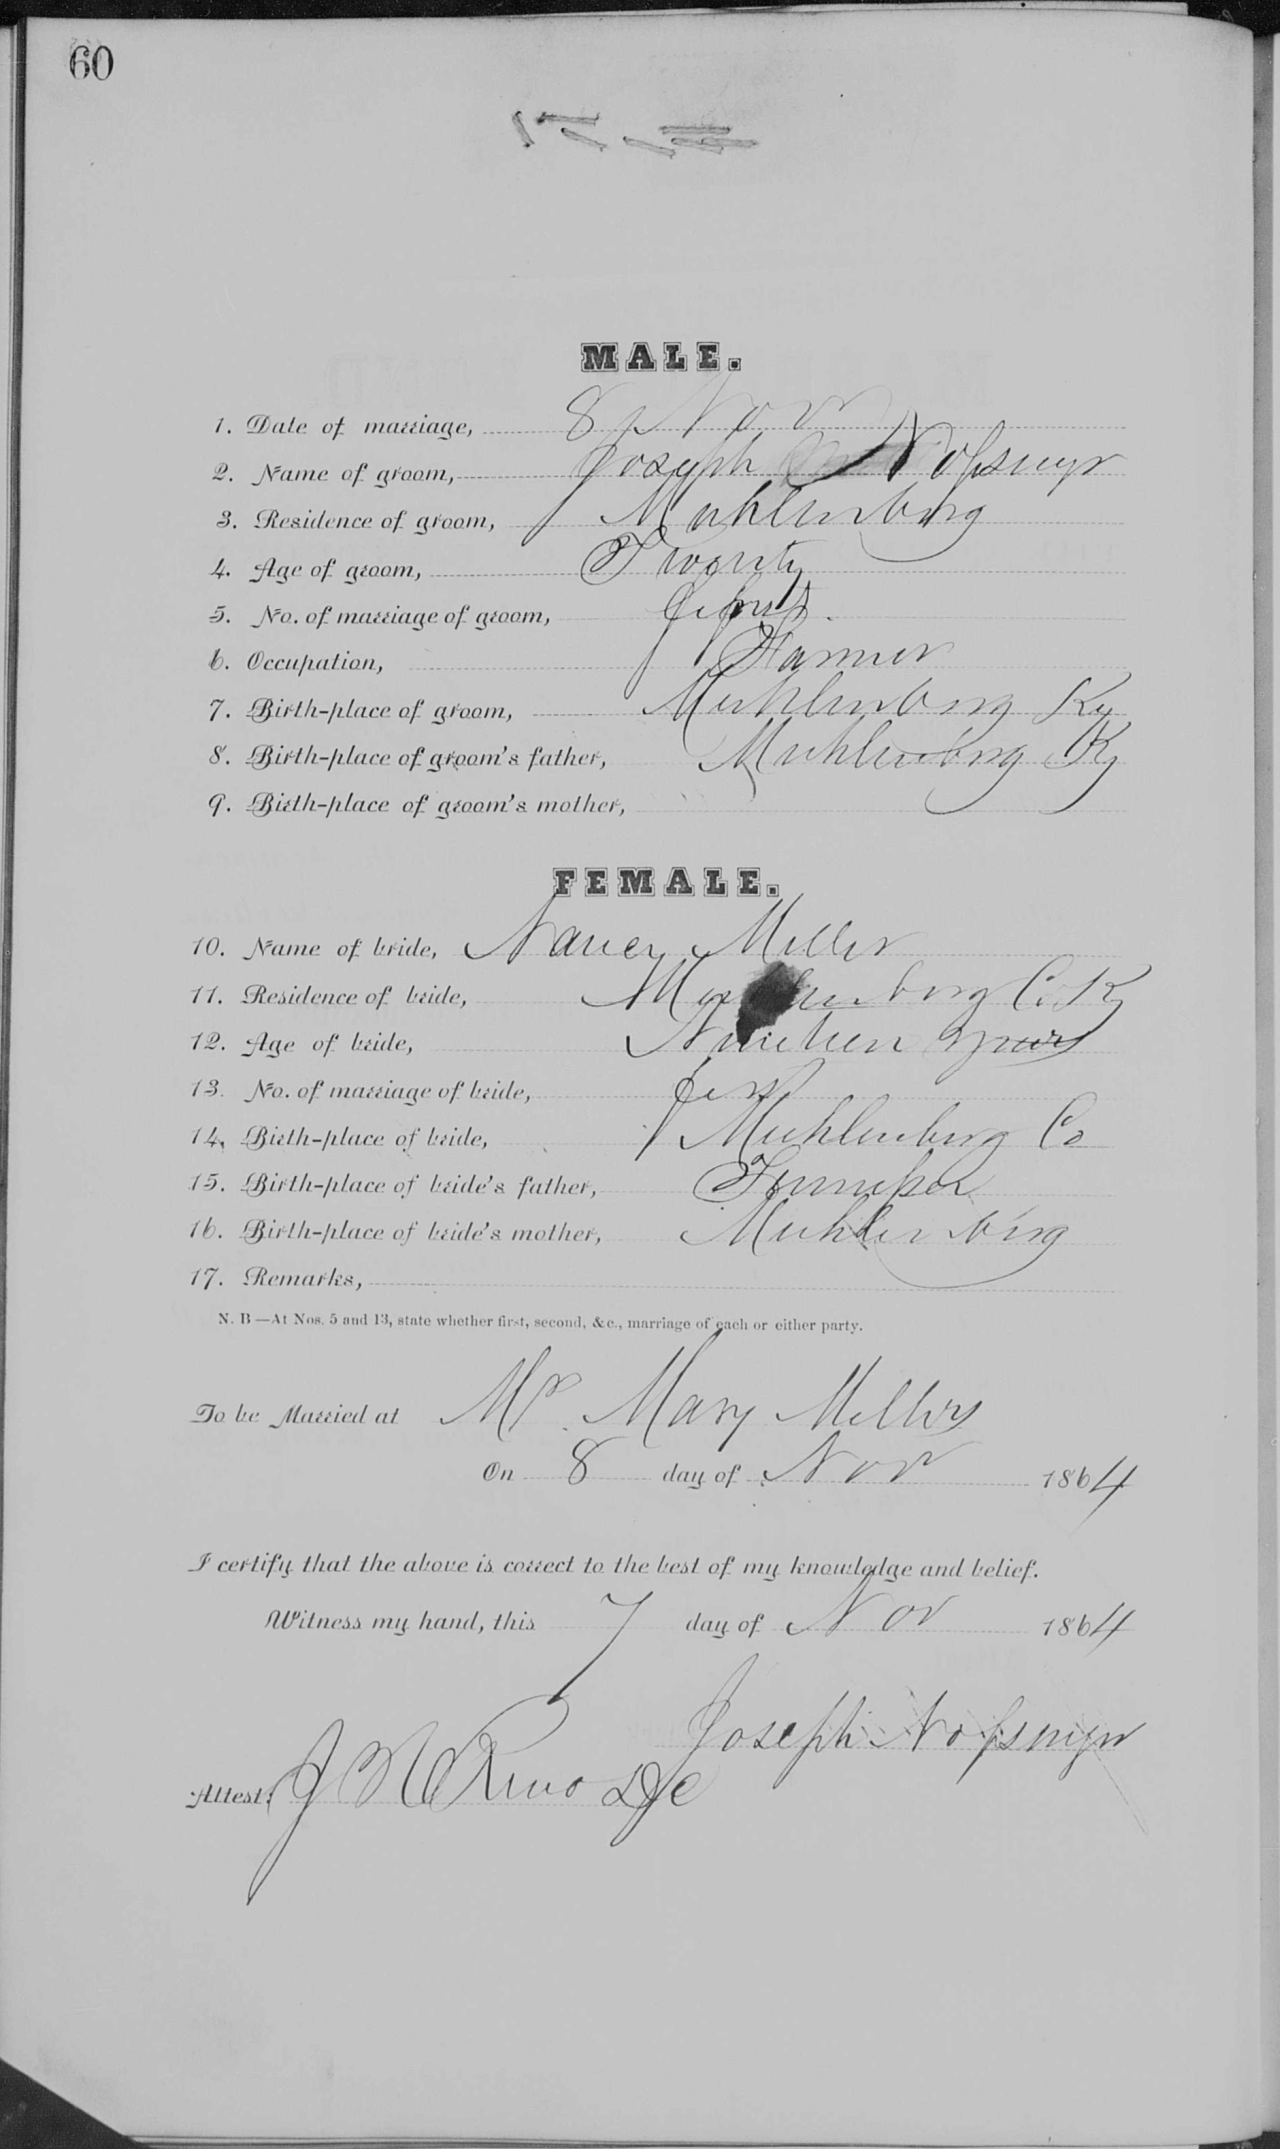 60
MALE.
1. Date of marriage, 8 Nov
2. Name of groom, Joseph Nofsinger
3. Residence of groom, Muhlenberg
4. Age of groom, Twenty
5. No. of marriage of groom, first.
6. Occupation, Farmer
7. Birth-place of groom, Muhlenberg Ky
8. Birth-place of groom's father, Muhlenberg Ky
9. Birth-place of groom's mother,
FEMALE.
10. Name of bride, Nancy Miller
11. Residence of bride, Muhlenberg Co Ky
12. Age of bride, Nineteen years
13. No. of marriage of bride, first
14. Birth-place of bride, Muhlenberg Co
15. Birth-place of bride's father, Tennessee
16. Birth-place of bride's mother, Muhlenberg
17. Remarks,
N. B—At Nos. 5 and 13, state whether first, second, &c., marriage of each or either party.
To be Married at Mrs. Mary Millers
On 8 day of Nov 1864
I certify that the above is correct to the best of my knowledge and belief.
Witness my hand, this 7 day of Nov 1864
Joseph Nofsinger
Attest: